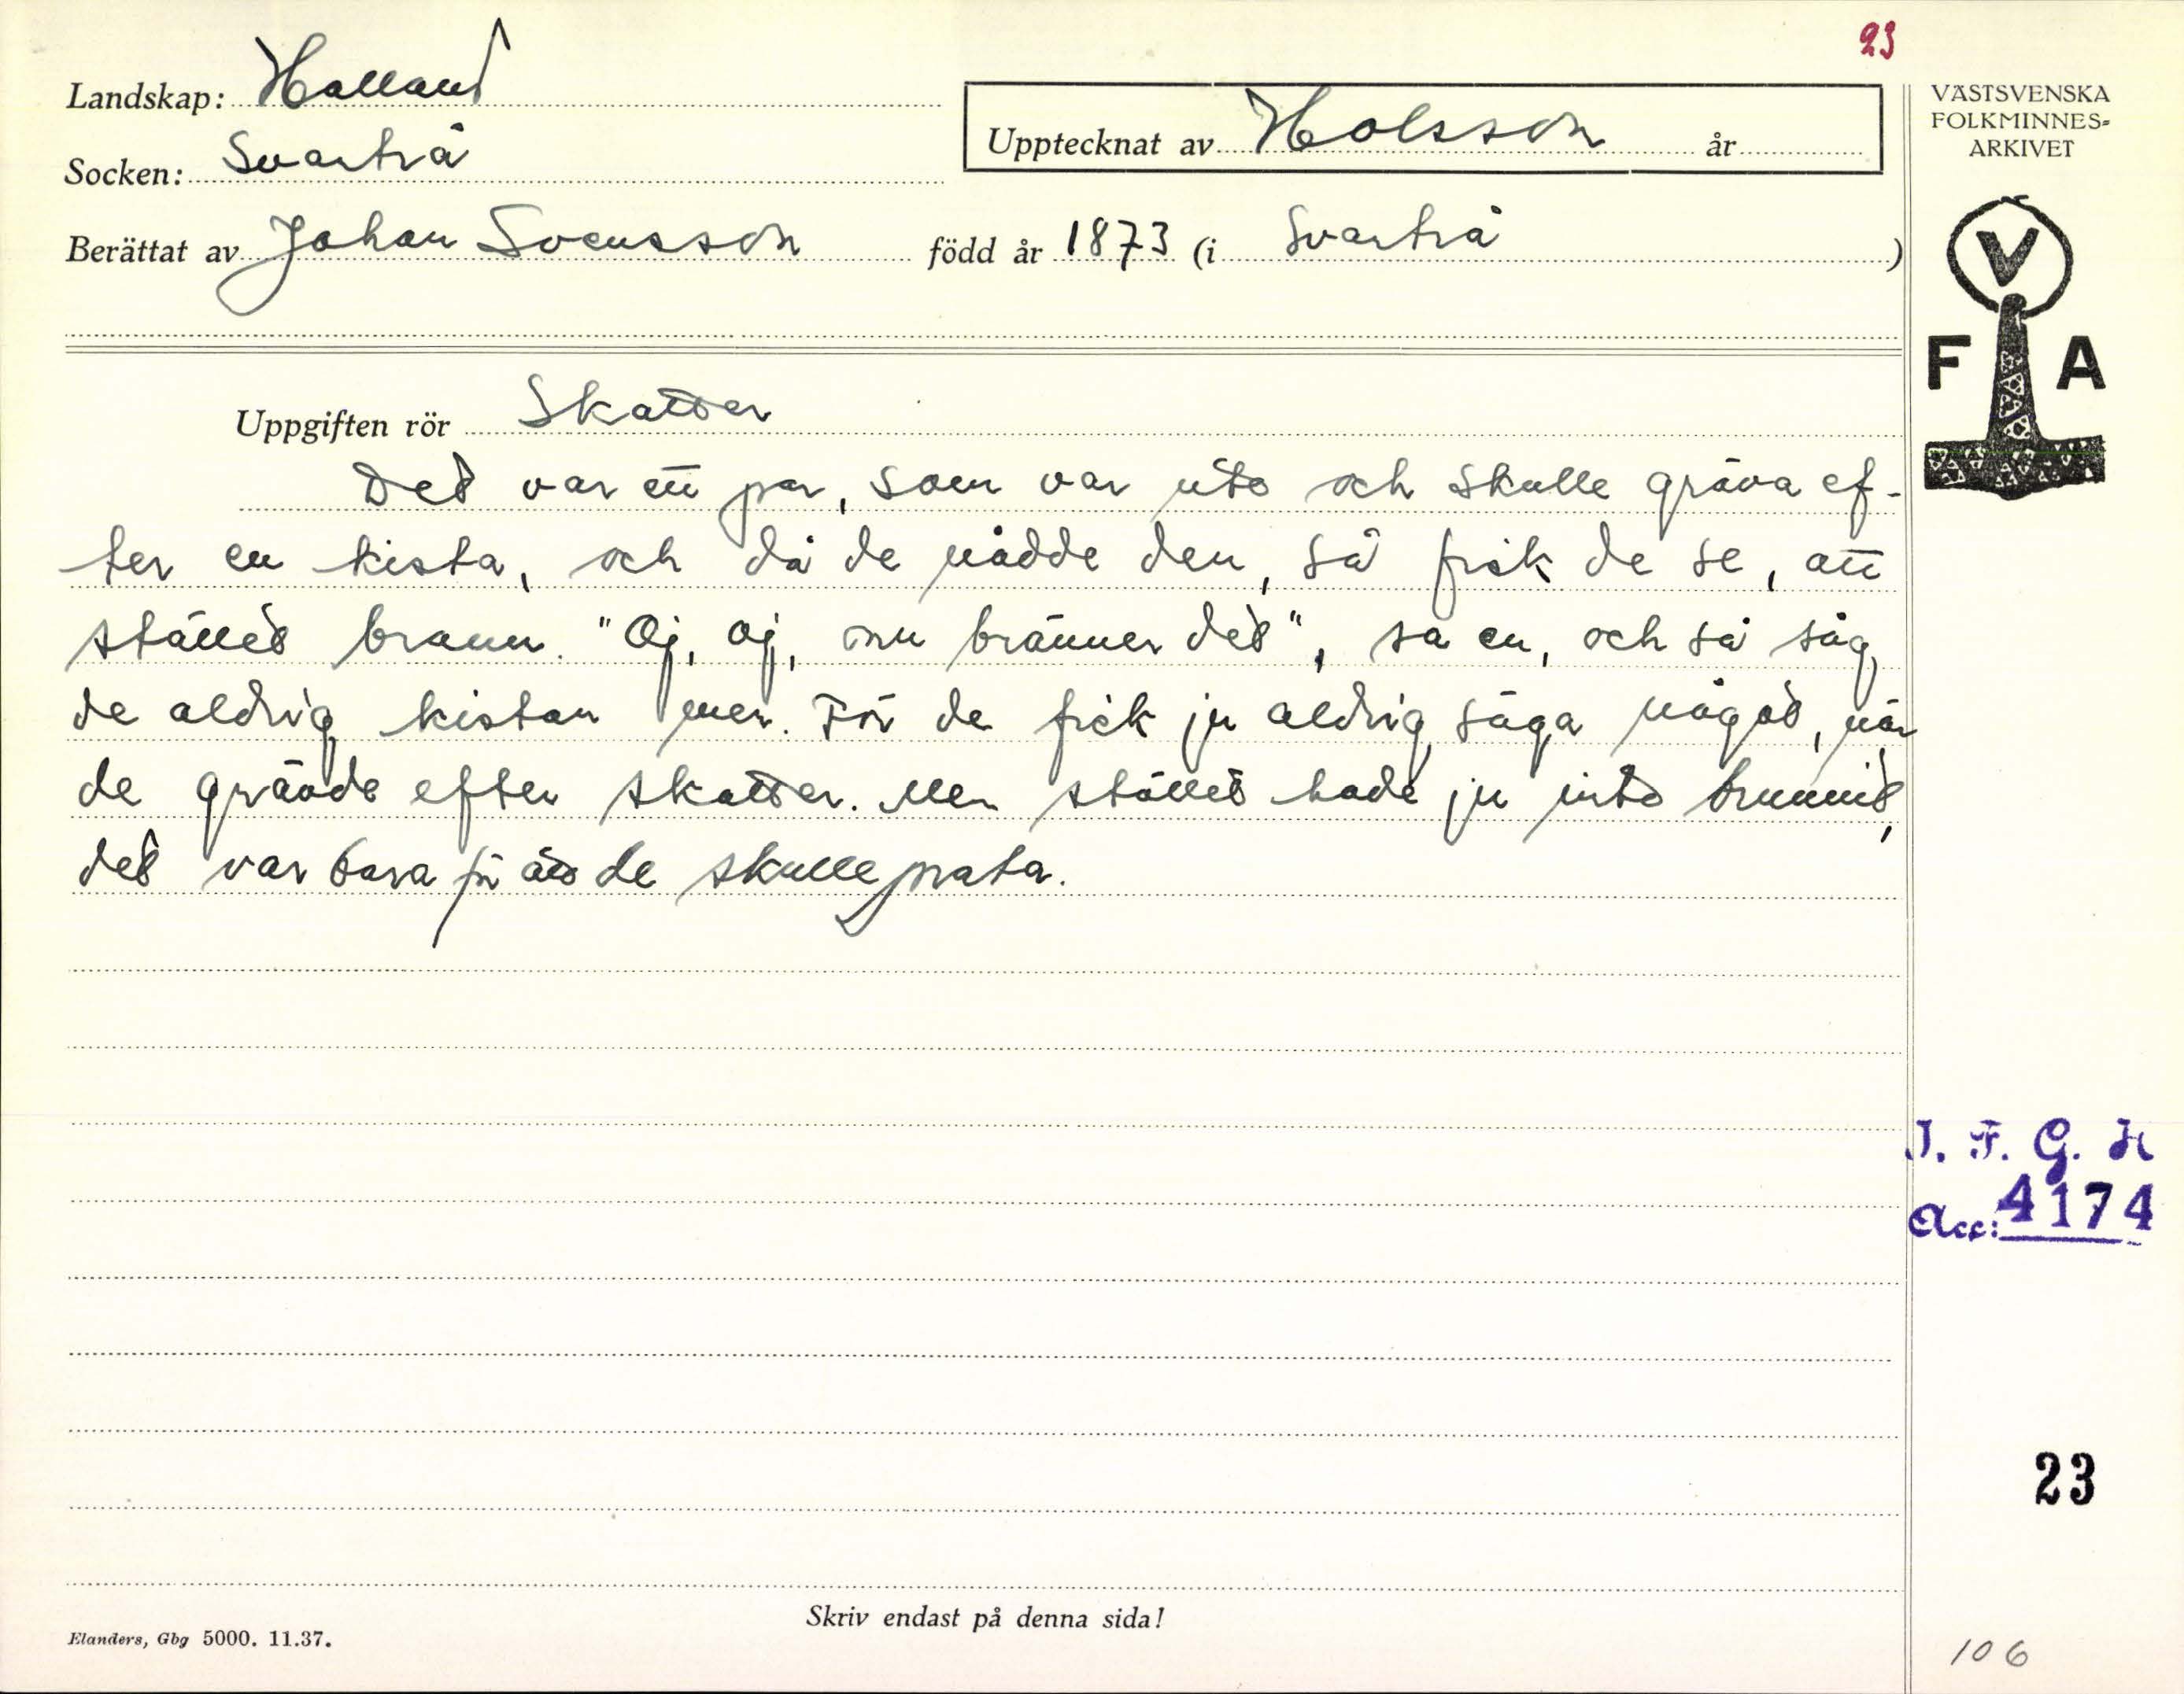 23
Landskap: Halland
Upptecknat av Holsson år
Socken: Svartrå
Berättat av Johan Svensson född år 1873 (i Svartrå )
Uppgiften rör Skatter
Det var ett par, som var ute och skulle gräva ef-
ter en kista, och då de nådde den, så fick de se, att
stället brann. "Oj, oj, nu bränner det", sa en, och så såg
de aldrig kistan mer. För de fick ju aldrig säga något, när
de grävde efter skatter. Men stället hade ju inte brunnit,
det var bara för att de skulle prata.
Skriv endast på denna sida!
Elanders, Gbg 5000. 11.37.
VÄSTSVENSKA
FOLKMINNES-
ARKIVET
V
F A
I. F. G. H
Acc: 4174
23
106